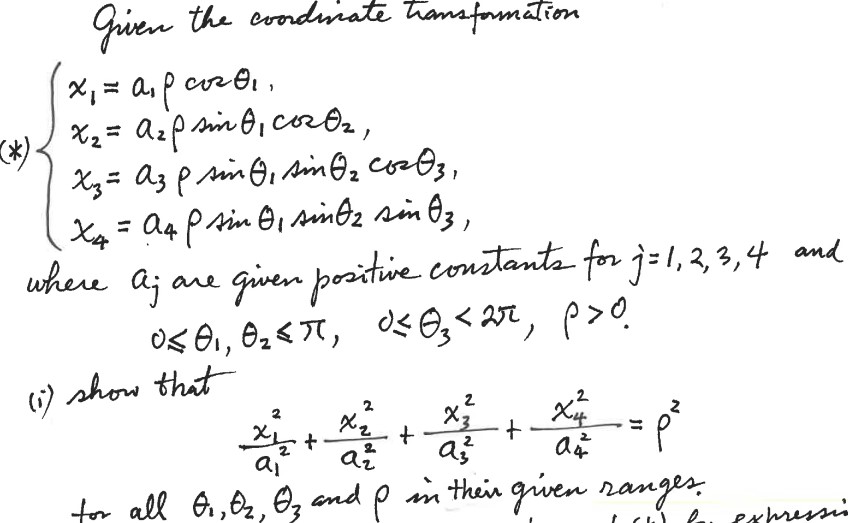 Given the coordinate transformation
(*) { x₁ = a₁ρ cosθ₁,
x₂ = a₂ρ sinθ₁ cosθ₂,
x₃ = a₃ρ sinθ₁ sinθ₂ cosθ₃,
x₄ = a₄ρ sinθ₁ sinθ₂ sinθ₃,
where aⱼ are given positive constants for j=1,2,3,4 and
0≤θ₁,θ₂≤π, 0≤θ₃<2π, ρ>0.
(i) show that
x₁²/a₁² + x₂²/a₂² + x₃²/a₃² + x₄²/a₄² = ρ²
for all θ₁,θ₂,θ₃ and ρ in their given ranges.